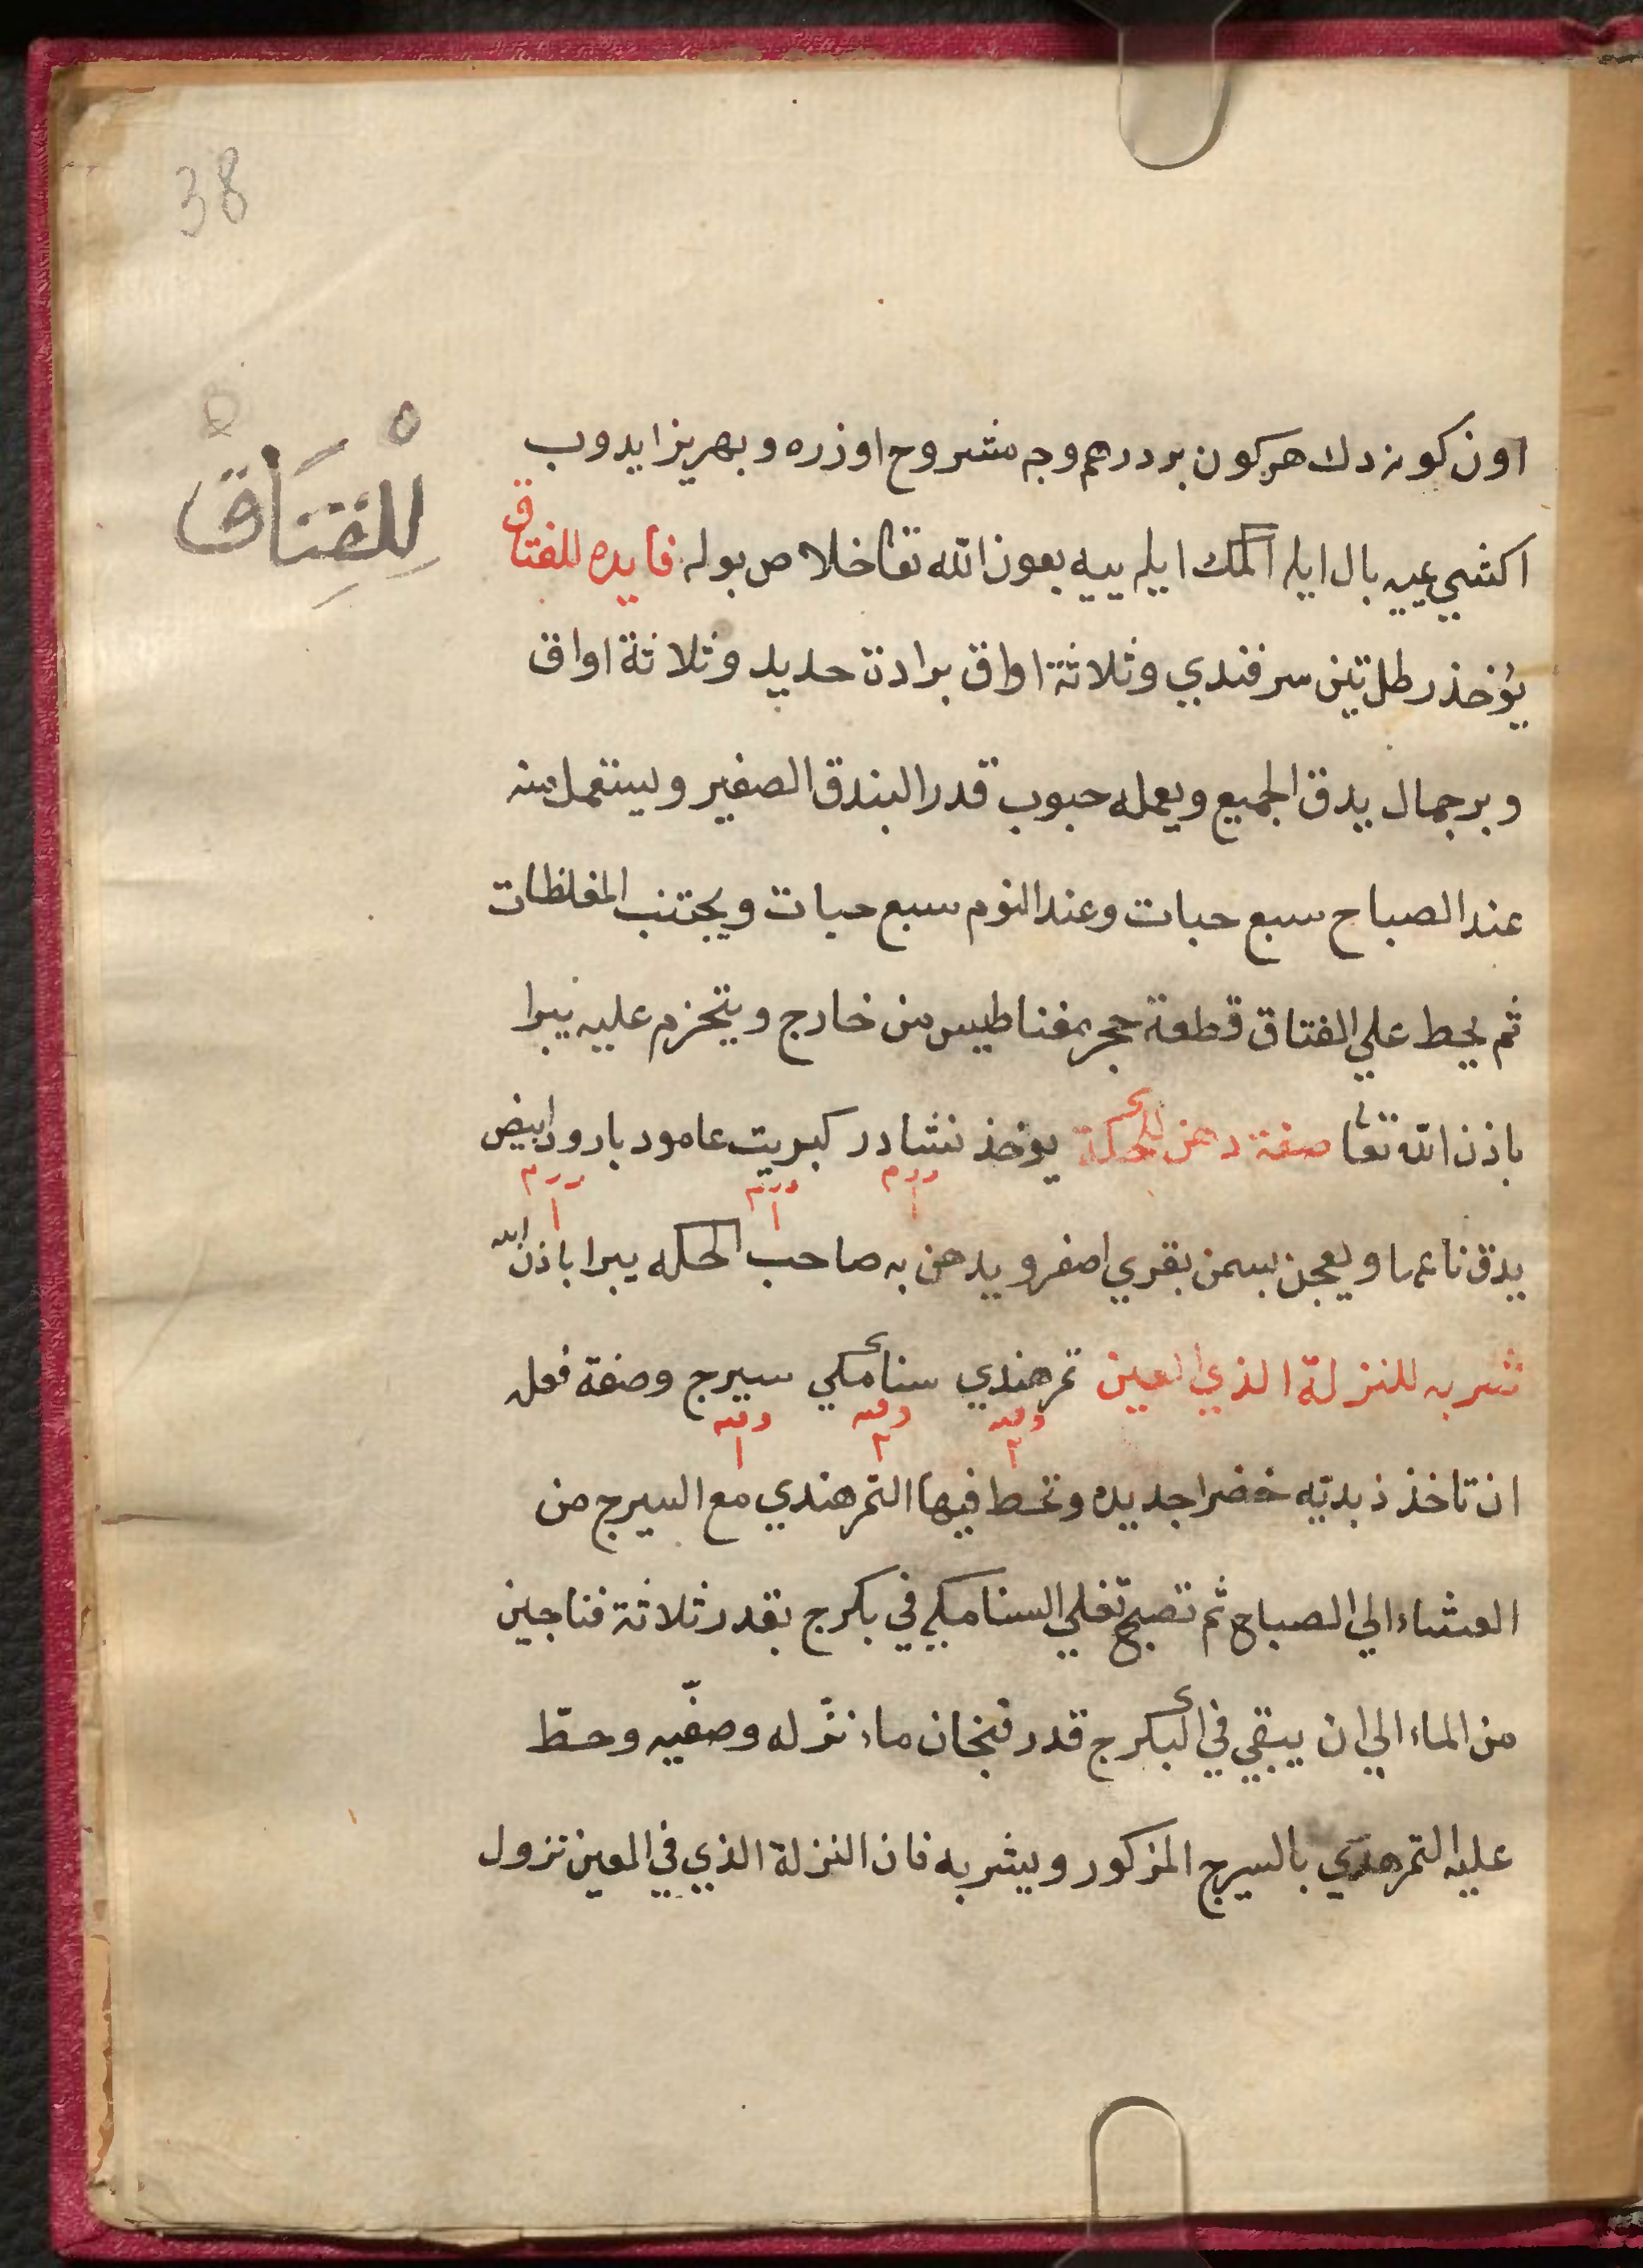 38
للفتاق
اون كونه دك هركون بر درهم وجه مشروح اوزره وبهريز ايدوب
اكشي يميه بال ايله اكمك ايله ييه بعون الله تعا خلاص بوله فايده للفتاق
يؤخذ رطل تين سمرقندي وثلاثة اواق برادة حديد وثلاثة اواق
وبرجمال يدق الجميع ويعمله حبوب قدر البندق الصغير ويستعمل منه
عند الصباح سبع حبات وعند النوم سبع حبات ويجتنب المغلظات
ثم يحط علي الفتاق قطعة حجر مغناطيس من خارج ويتحزم عليه يبرا
باذن الله تعا صفة دهن للحكة يوخذ نشادر كبريت عامود بارود ابيض
درهم ١ درهم ١ درهم ١
يدق ناعما ويعجن بسمن بقري اصفر ويدهن به صاحب الحكه يبرا باذن الله
شربه للنزلة الذي العين تمرهندي سنامكي سيرج وصفة فعله
وقيه ٢ وقيه ٢ وقيه ١
ان تاخذ زبديّه خضرا جديده وتحط فيها التمرهندي مع السيرج من
العشاء الي الصباح ثم تصبح تغلي السنامكي في بكرج بقدر ثلاثة فناجين
من الماء الي ان يبقي في البكرج قدر فنجان ماء نزّله وصفّيه وحطّ
عليه التمرهندي بالسيرج المزكور ويشربه فان النزلة الذي في العين تزول